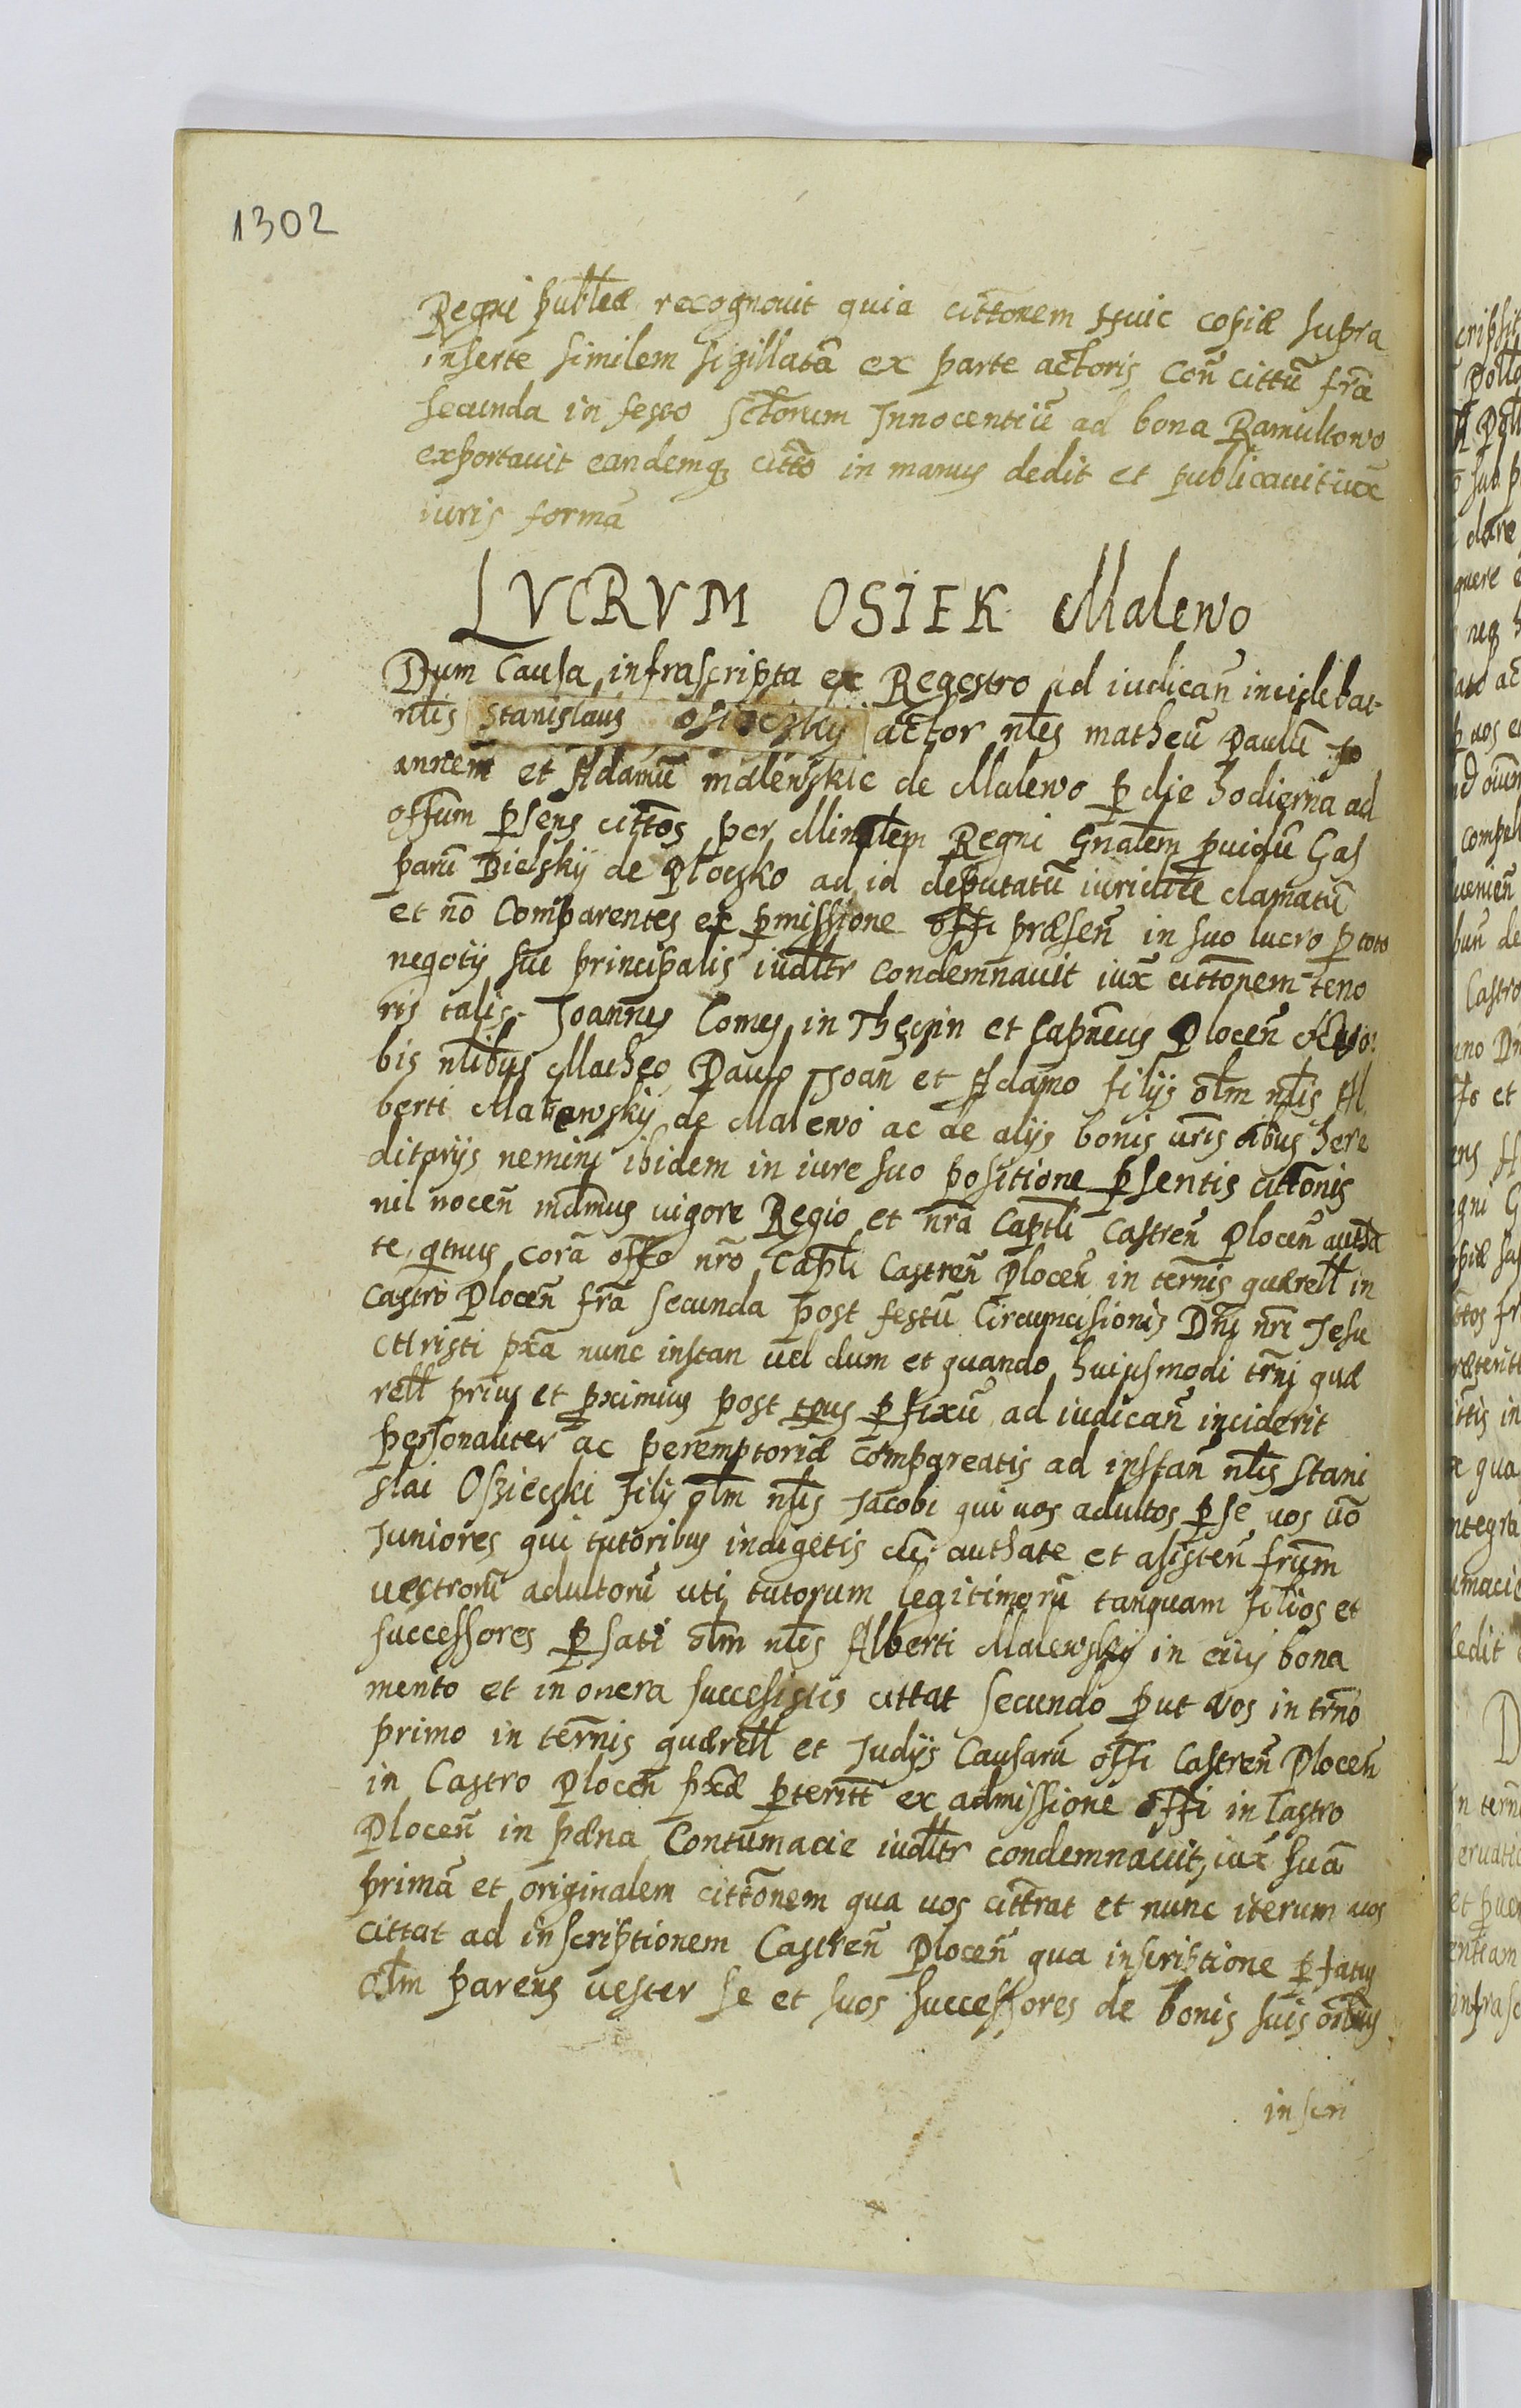 1302
Regni publicæ recognouit quia cittõnem Huic copiæ supra
inserte similem sigillatã ex parte actoris Coñ cittũ frã
secunda in festo Sctorum Innocentiũ ad bona Ramultowo
exportauit eandemq; cittõ in manus dedit et publicauit iux̃
iuris formã
LVCRVM OSIEK Malewo
Dum Causa infrascripta ex Regestro ad iudicañ incidebat
nłis Stanislaus Osieczkij actor nłes matheũ Paulũ Jo
annem et Adamũ malewskie de Malewo p die hodierna ad
offum psens cittos per Minrałem Regni Gnałem puidũ Gas
parũ Bielskij de Płoczko ad id deputatũ iuridice clamatũ
et nõ Comparentes ex pmissione offi præseñ in suo lucro p toto
negotij sui principalis iudłtr condemnauit iux̃ cittõnem teno
ris talis. Joannes Comes in Thęczin et Capneus Płoceñ
bis nłibus Matheo Paulo Joañ et Adamo filijs ołm nłis Al
berti Malewskij de Malewo ac de alijs bonis ur̃is oĩbus here
ditarijs nemini ibidem in iure suo positione psentis cittõnis
nil noceñ mdmus uigore Regio et nr̃a Capłi Castreñ Ploceñ
te, qtnus corã offo nr̃o Capłi Castreñ Ploceñ in termis quærełł in
Castro Ploceñ frã secunda post festũ Circumcisionis Dñi nr̃i Jesu
CHristi pxã nunc instan uel dum et quando huiusmodi tr̃ni quæ
rełł prius et pximius post tpus pfixũ ad iudicañ inciderit
personaliter ac peremptoriæ compareatis ad instañ nłis Stani
slai Osziecski filij ołm nłis Jacobi qui uos adultos p se uos ũo
Juniores qui tutoribus indigetis cũ authate et asisteñ frum̃
uestrorũ adultorũ uti tutorum legitimorũ tanquam filios et
successores p fati ołm nłis Alberti Malewskij in eius bona
mento et in onera successistis cittat secundo put uos in tr̃no
primo in termis quærełł et Judijs Causarũ offi Castreñ Ploceñ
in Castro Ploceñ pxæ pteritt ex admissione offi in Castro
Ploceñ in pæna Contumacie iudłtr condemnauit, iux̃ suã
primã et originalem cittõnem qua uos cittrat et nunc iterum uos
cittat ad inscriptionem Castreñ Ploceñ qua inscriptione p fatus
ołm parens uester se et suos successores de bonis suis oĩbus
inscri